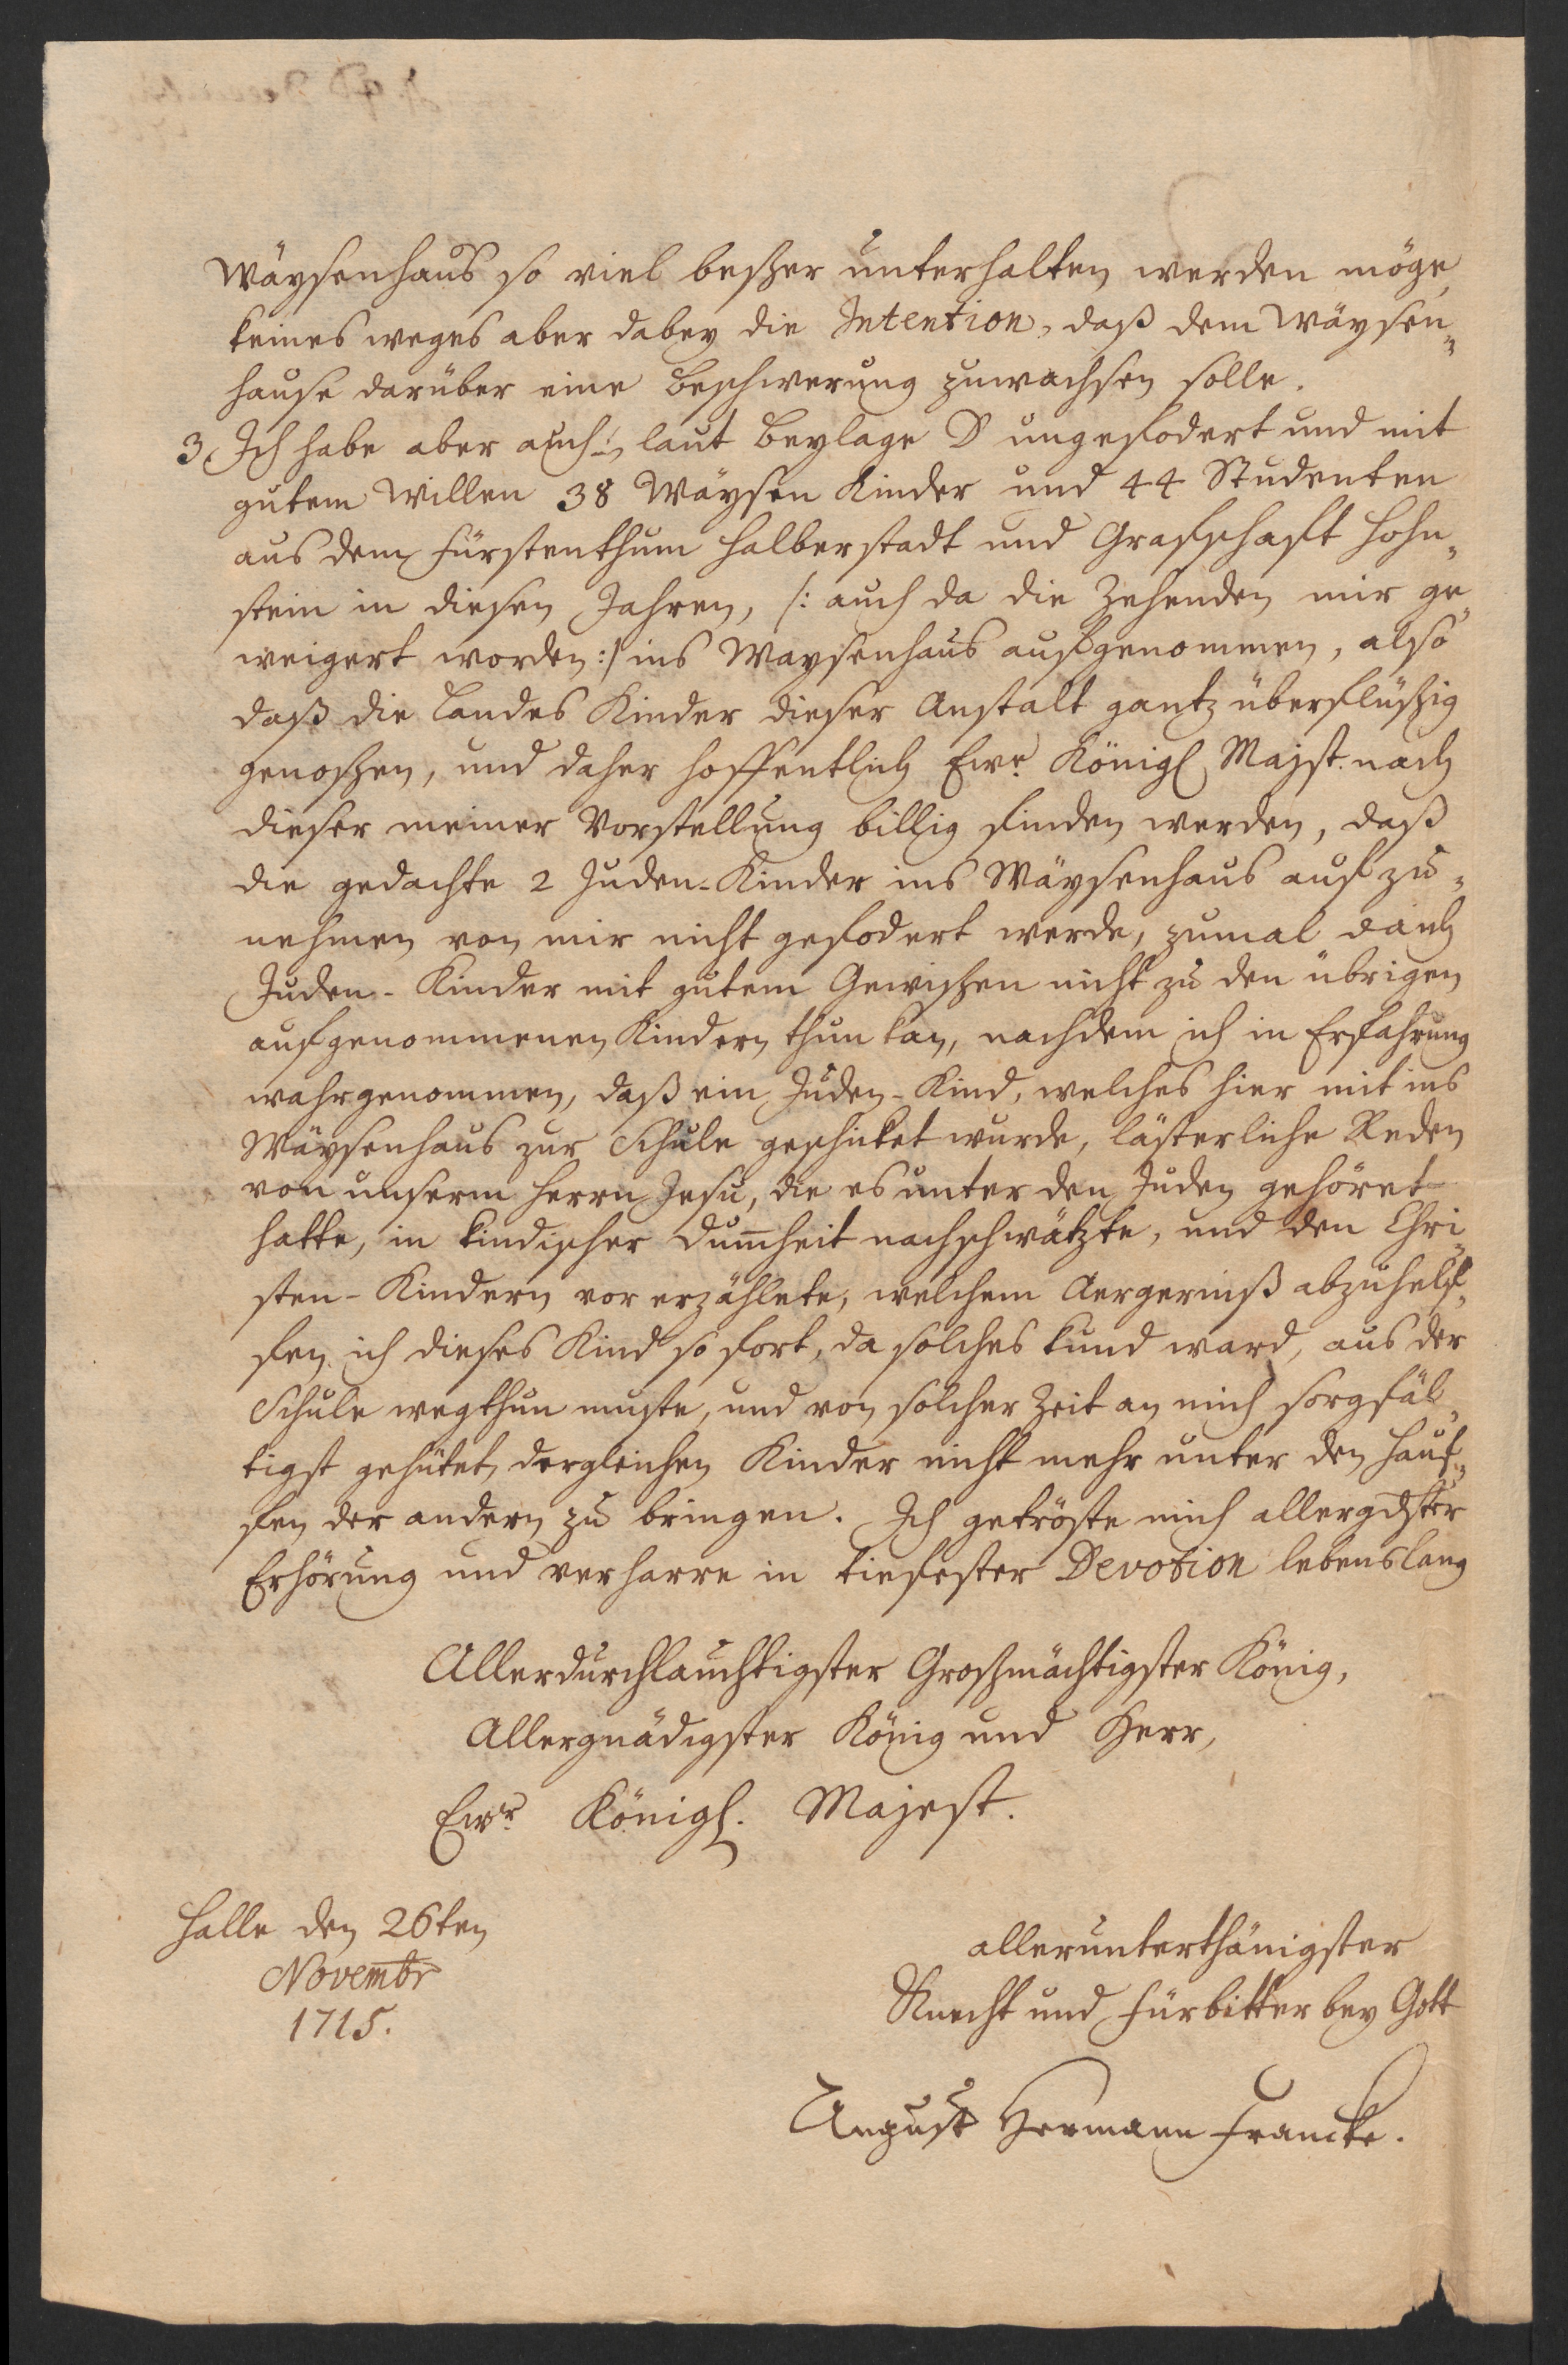 Wäysenhaus so viel beßer unterhalten werden möge,
keines weges aber dabey die Intention, daß dem Wäysen-
hause darüber eine Beschwerung zuwachsen solle.
3, Ich habe aber auch laut Beylage D ungefodert und mit
gutem Willen 38 Wäysen Kinder und 44 Studenten
aus dem Fürstenthum Halberstadt und Grafschaft Hohn-
stein in diesen Jahren, /: auch da die Zehenden mir ge-
weigert worden :/ ins Waysenhaus aufgenommen, also
daß die Landes Kinder dieser Anstalt gantz überflüßig
genoßen, und daher hoffentlich Ewr. Königl Majst. nach
dieser meiner Vorstellung billig finden werden, daß
die gedachte 2 Juden-Kinder ins Wäysenhaus auf zu-
nehmen von mir nicht gefodert werde, zumal da ich
Juden-Kinder mit gutem Gewißen nicht zu den übrigen
aufgenommenen Kindern thun kan, nachdem ich in Erfahrung
wahrgenommen, daß ein Juden-Kind, welches hier mit ins
Wäysenhaus zur Schule geschicket wurde, lästerliche Reden
von unserm Herrn Jesu, die es unter den Juden gehöret
hatte, in kindischer Dum̅heit nachschwätzte, und den Chri-
sten-Kindern vor erzählete, welchem Aergerniß abzuhelf-
fen ich dieses Kind so fort, da solches kund ward, aus der
Schule wegthun muste, und von solcher Zeit an mich sorgfäl-
tigst gehütet dergleichen Kinder nicht mehr unter den Hauf-
fen der andern zu bringen. Ich getröste mich allergdster
Erhörung und verharre in tiefester Devotion lebenslang
Allerdurchlauchtigster Großmächtigster König,
Allergnädigster König und Herr,
Ewr. Königl. Majest.
Halle den 26ten
Novembr
1715.
allerunterthänigster
Knecht und Fürbitter bey Gott
August Hermann Francke.